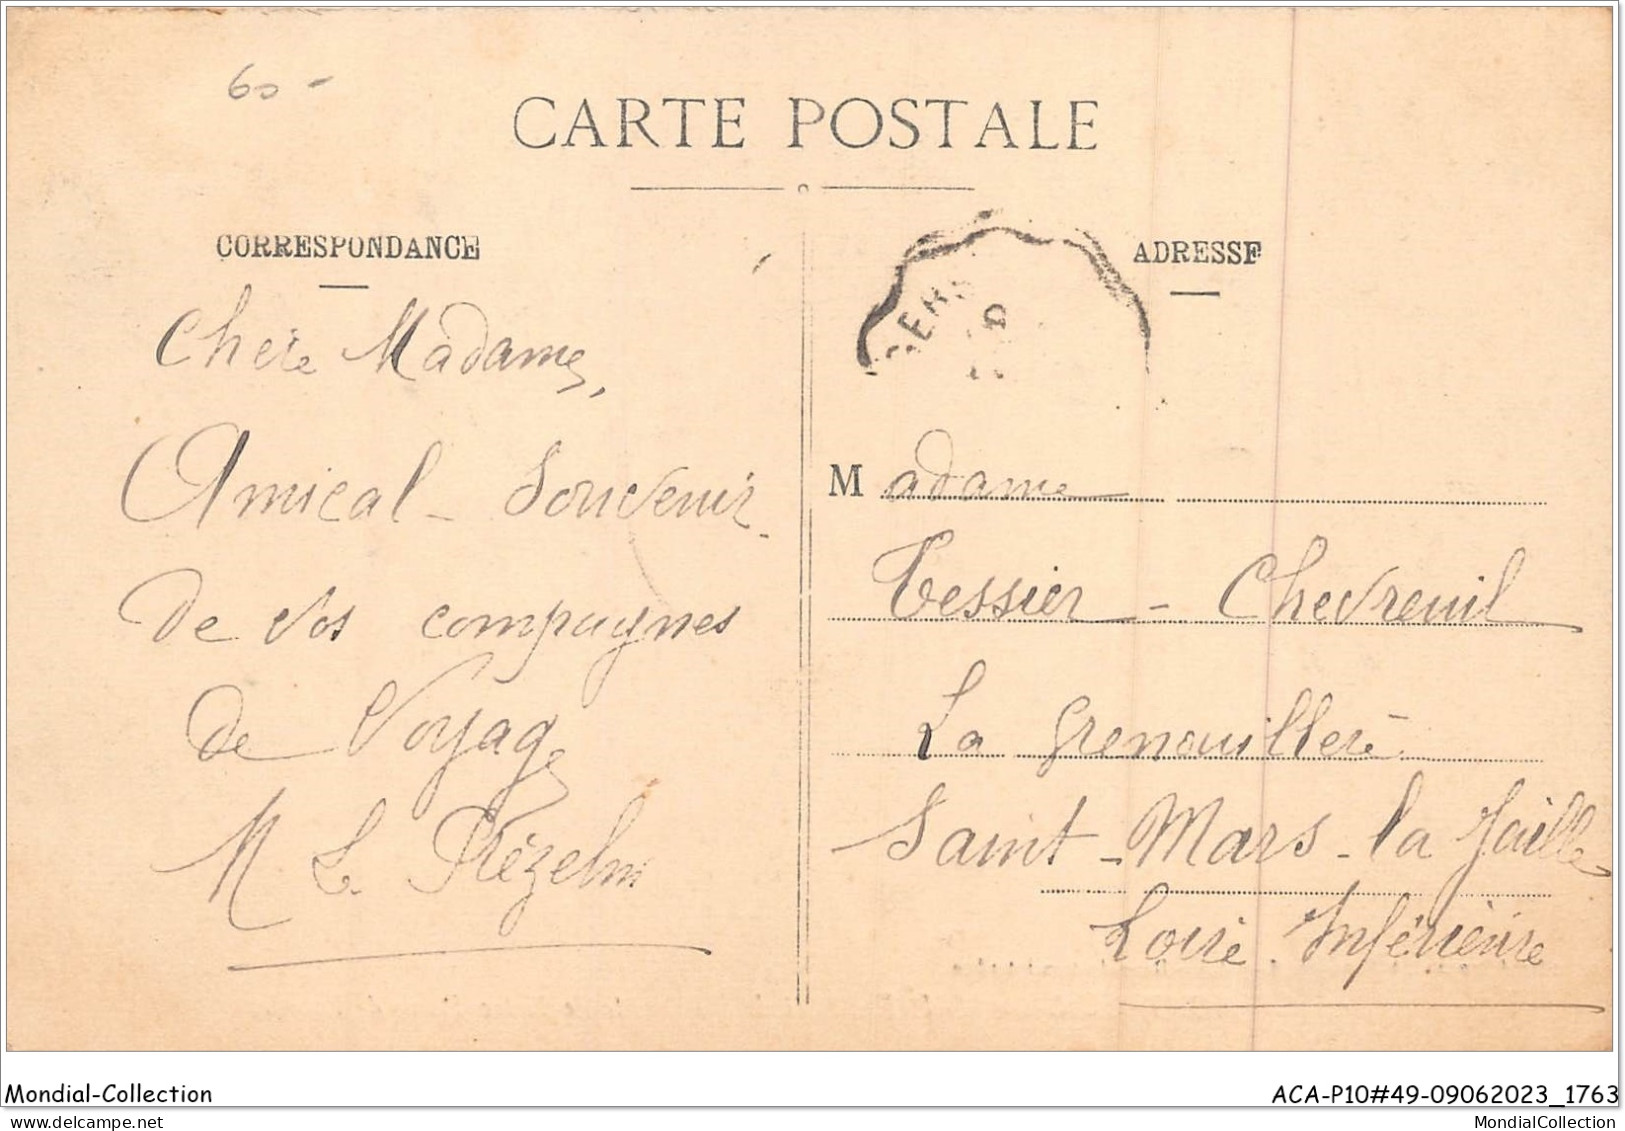 60 -
CARTE POSTALE
CORRESPONDANCE
ADRESSE
GERS
Chère Madame,
Amical - Souvenir
de vos compagnes
de Voyage
M L
Madame
Tessier - Chevreuil
La Grenouillère
Saint - Mars - la Jaille
Loire. Inférieure
Mondial-Collection
ACA-P10#49-09062023_1763
www.delcampe.net
MondialCollection